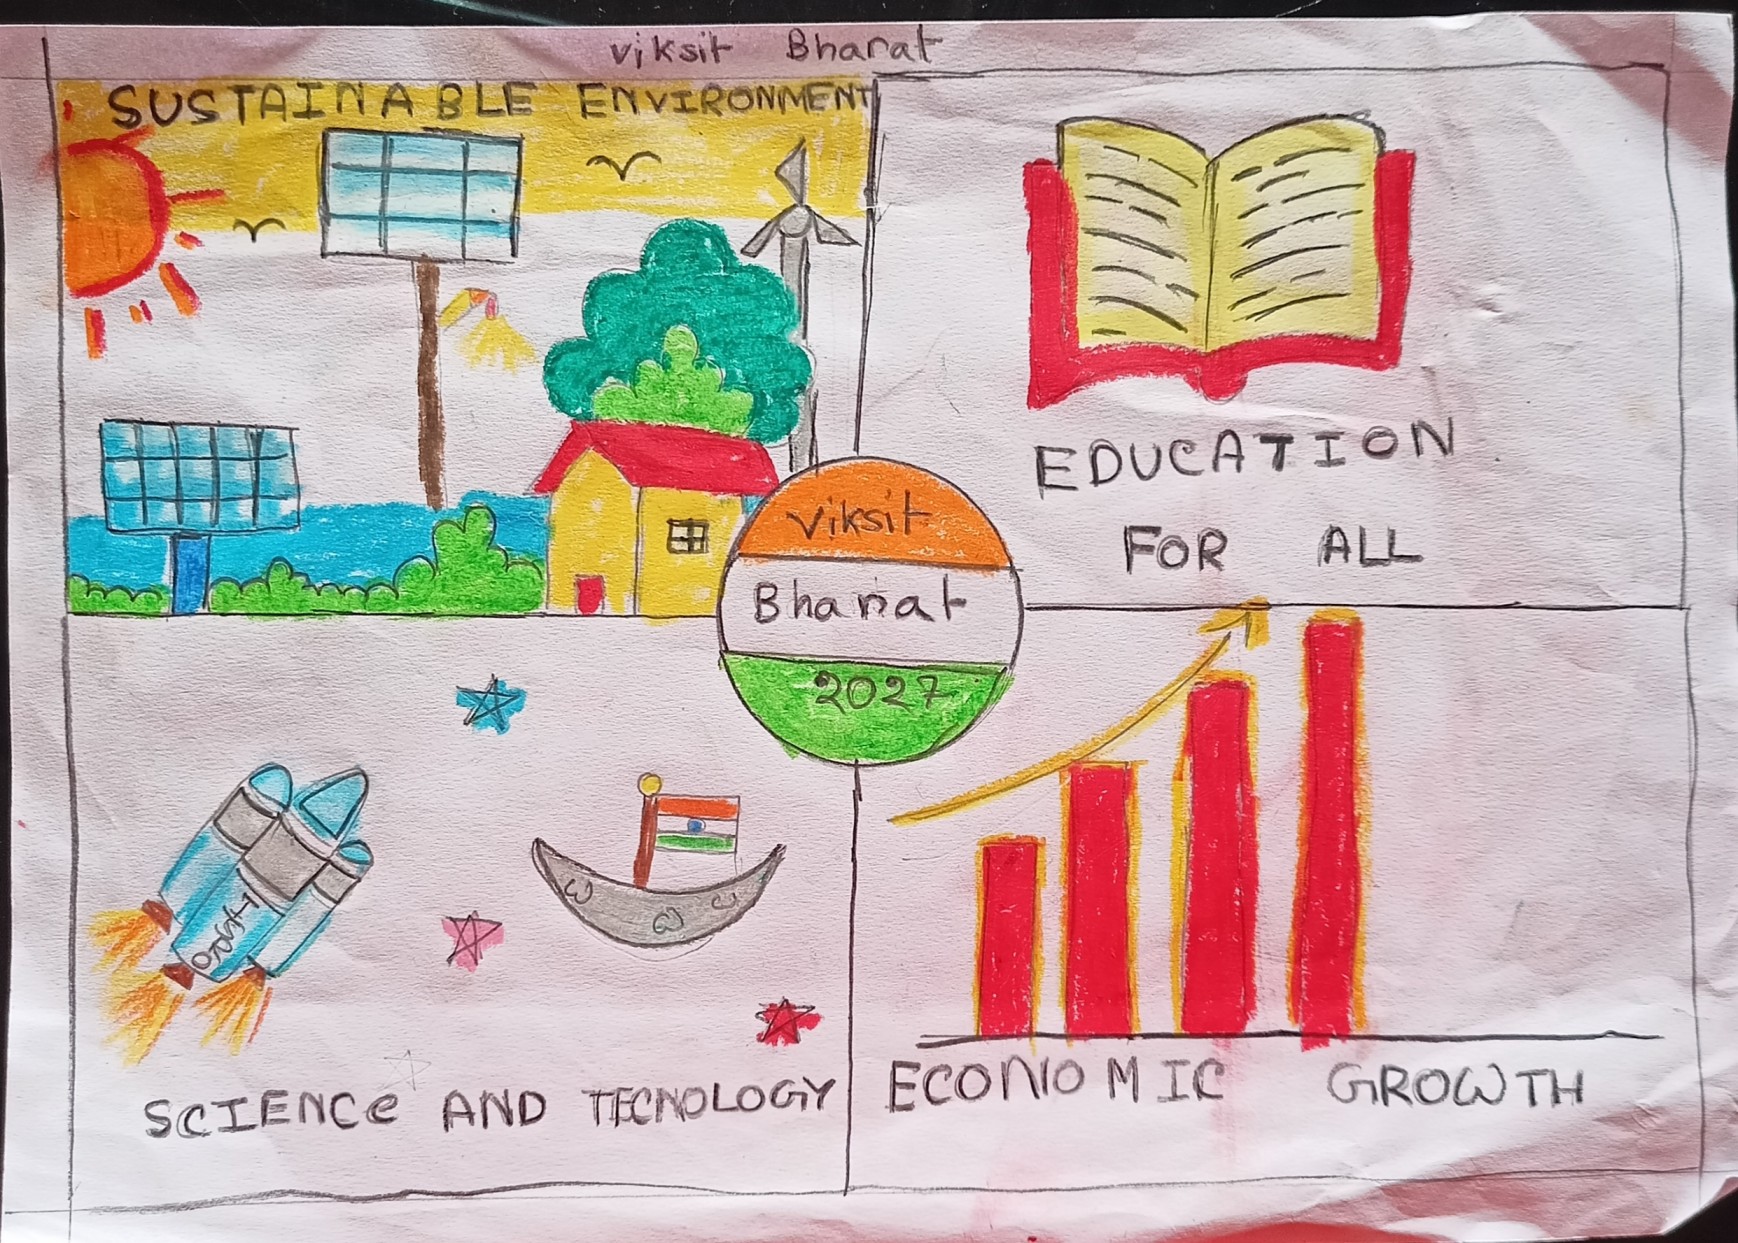 viksit Bharat
SUSTAINABLE ENVIRONMENT
EDUCATION
FOR ALL
viksit
Bharat
2027
SCIENCe AND TECNOLOGY
ECONIOMIC GROWTH